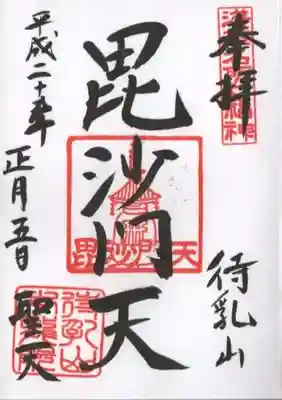 奉拝
浅草名所七福神
待乳山
毘沙門天
毘沙門天
平成二十五年
正月五日
聖天
待乳山